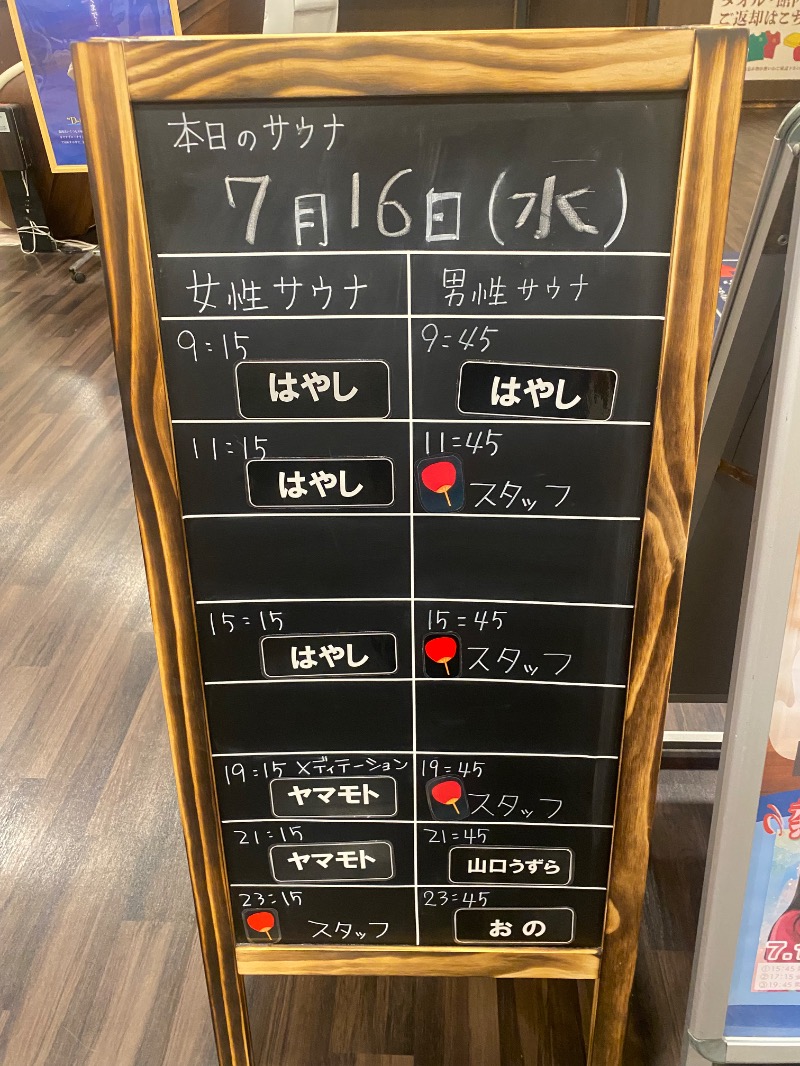 本日のサウナ
7月16日(水)
女性サウナ 男性サウナ
9:15 9:45
はやし はやし
11:15 11:45
はやし スタッフ
15:15 15:45
はやし スタッフ
19:15 メディテーション 19:45
ヤマモト スタッフ
21:15 21:45
ヤマモト 山口うずら
23:15 23:45
スタッフ おの